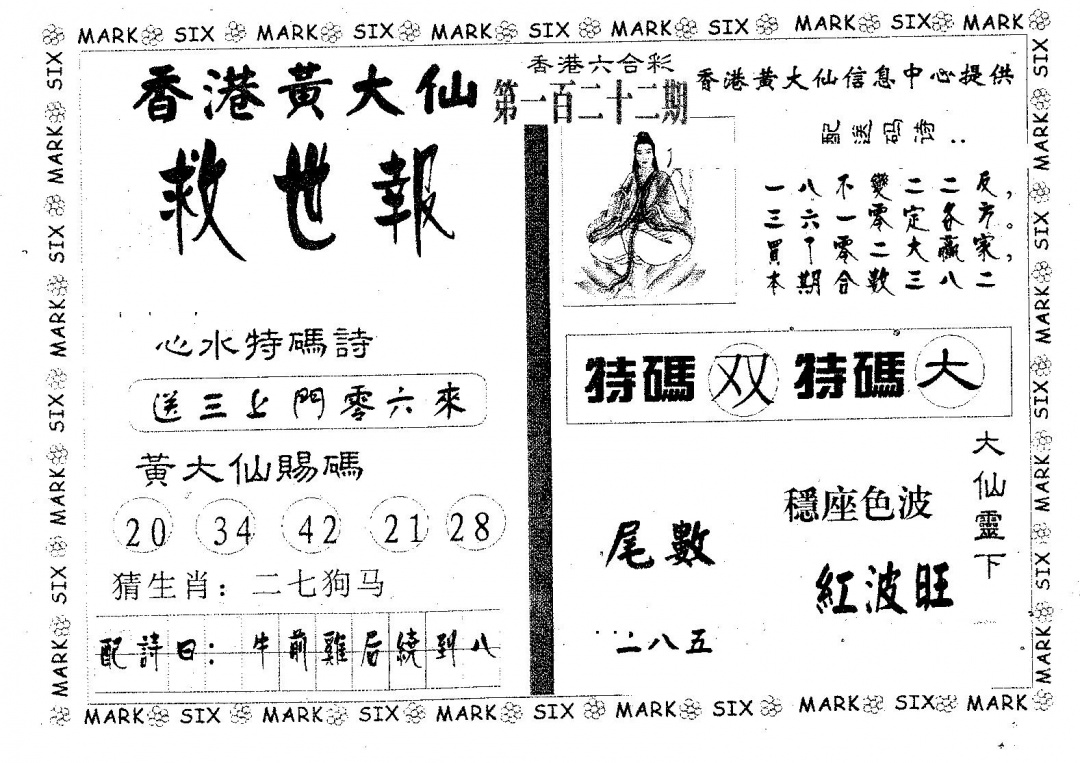 MARK SIX MARK SIX MARK SIX MARK SIX MARK SIX MARK
香港黃大仙
救世報
心水特碼詩
送三上門零六來
黃大仙賜碼
20 34 42 21 28
猜生肖：二七狗马
配詩曰：牛前雞后繞到八
香港六合彩
第一百二十二期
香港黄大仙信息中心提供
配送码诗：
一八不變二二反，
三六一零定各方。
買丁零二大贏家，
本期合数三八二
特碼双 特碼大
大仙靈下
穩座色波
紅波旺
尾數
二八五
MARK SIX MARK SIX MARK SIX MARK SIX MARK SIX MARK
SIX MARK SIX MARK SIX MARK SIX MARK
SIX MARK SIX MARK SIX MARK SIX MARK